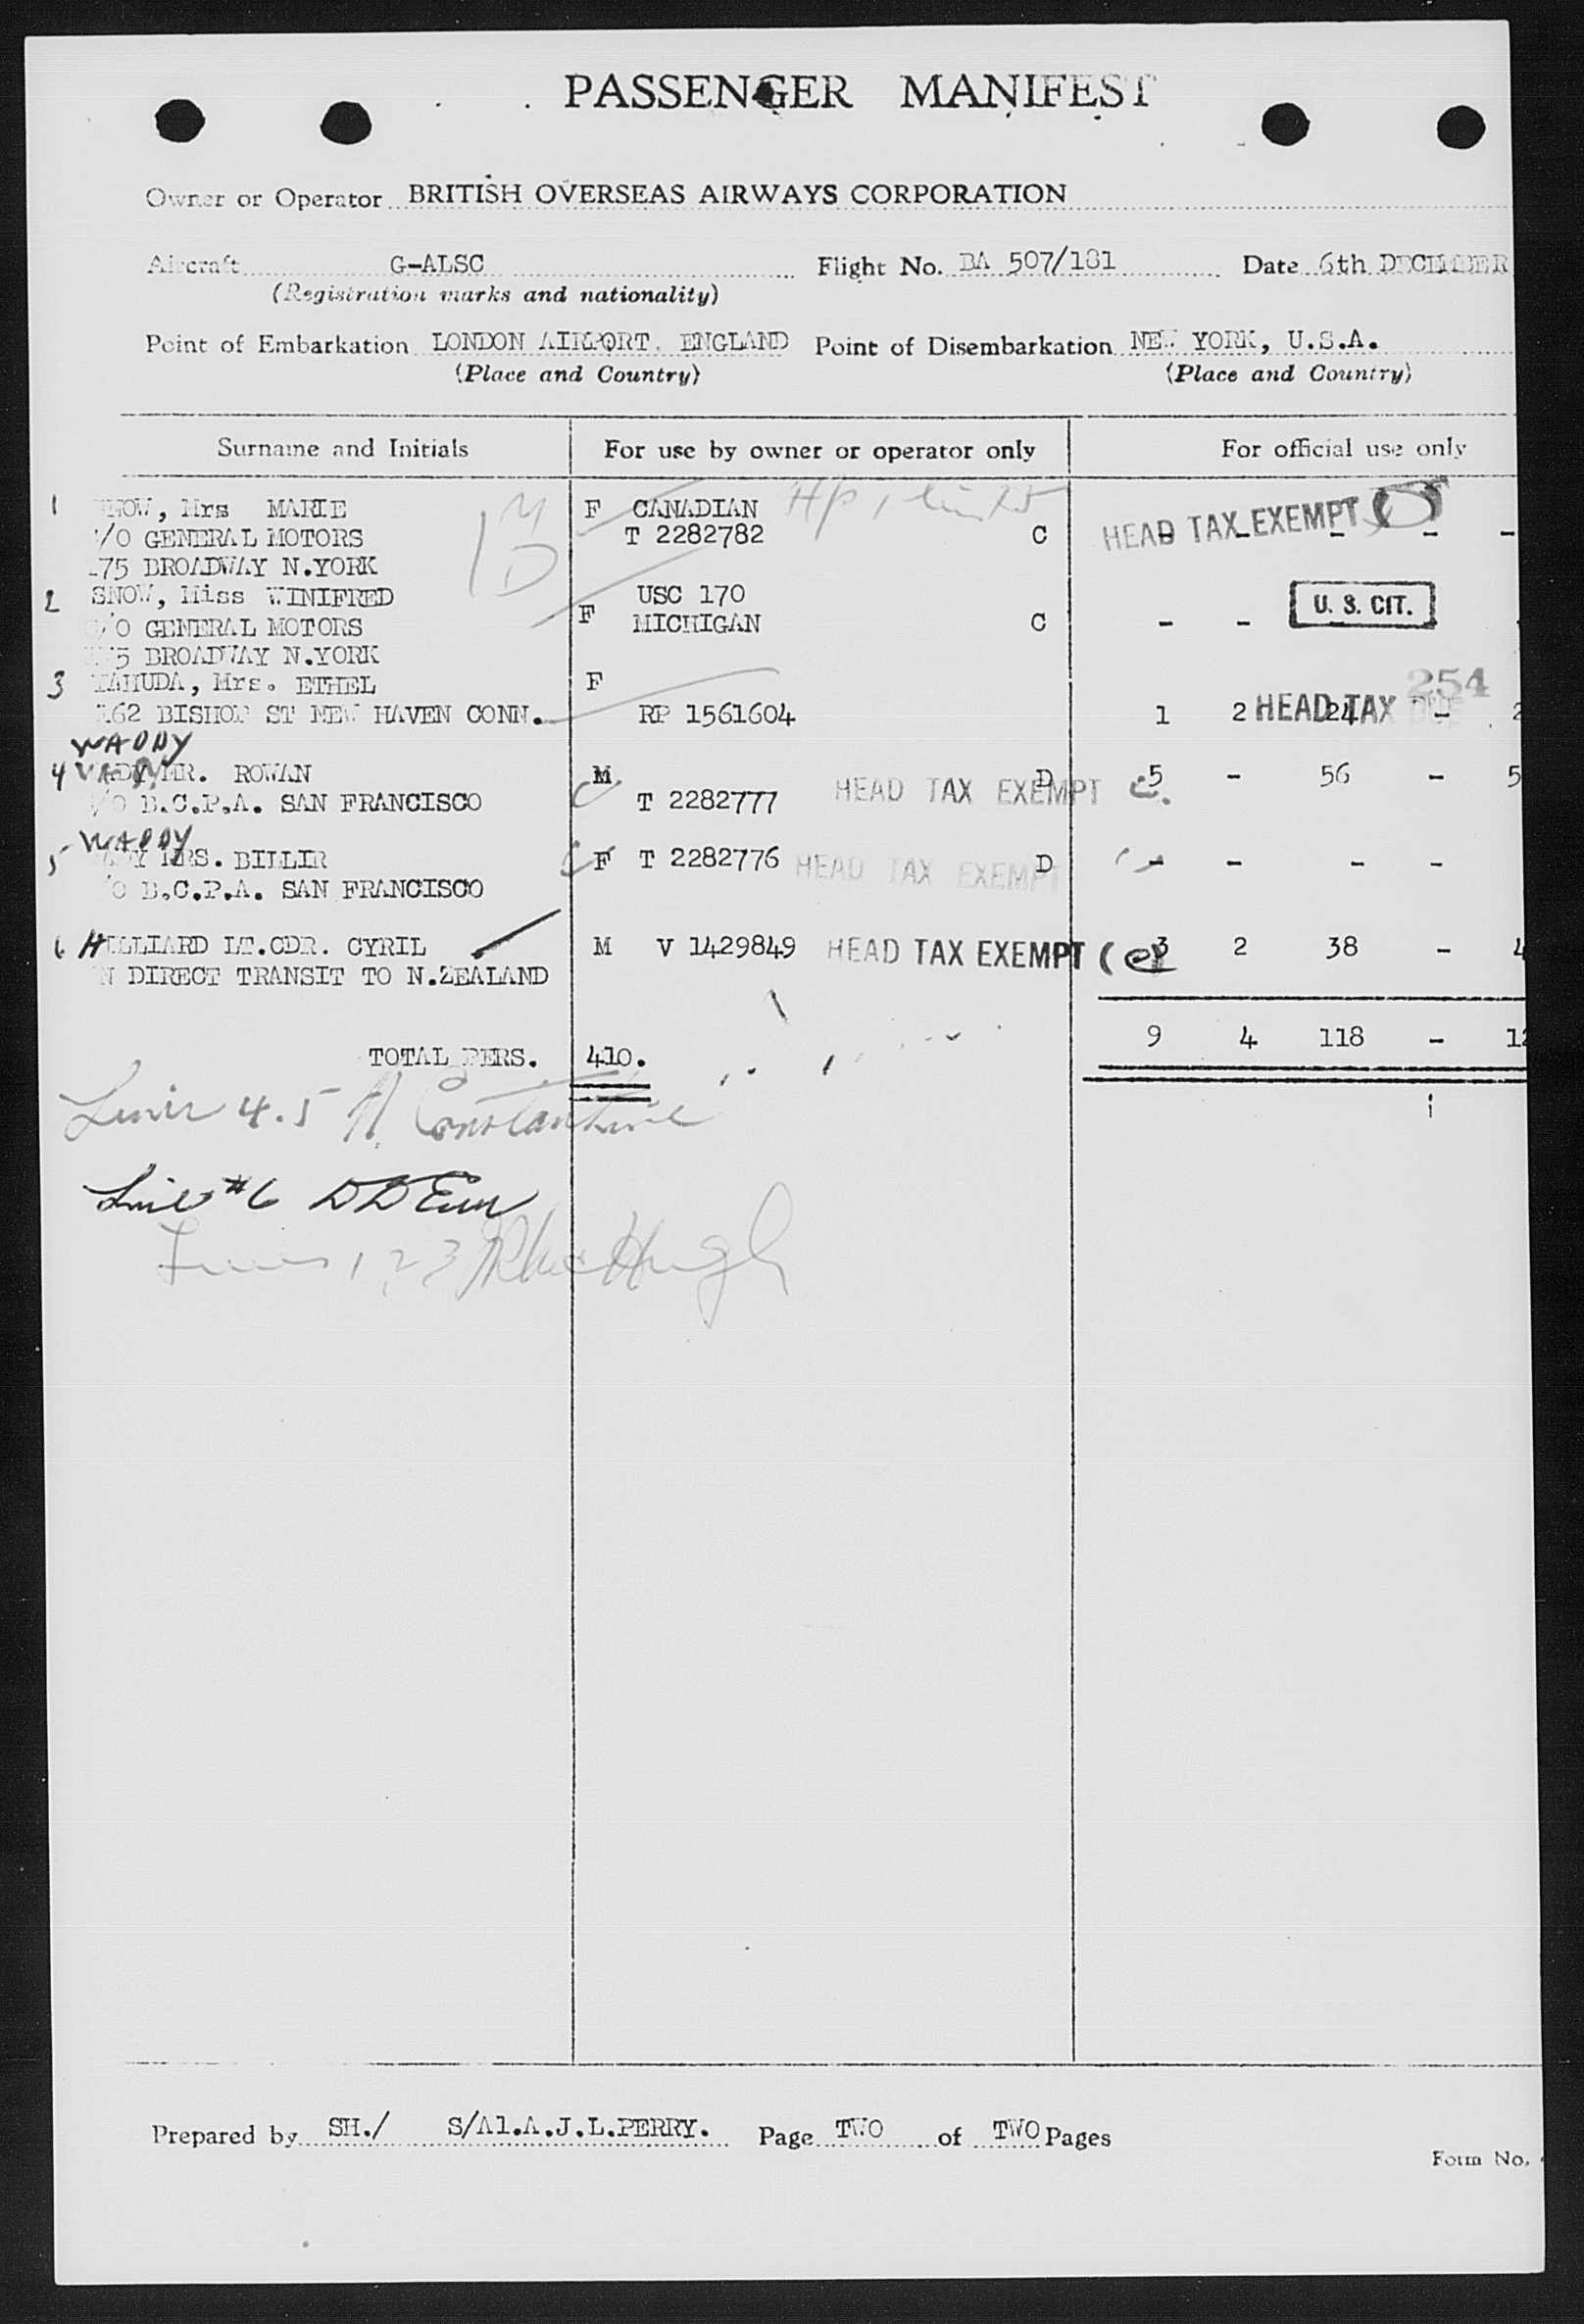 PASSENGER MANIFEST
Owner or Operator BRITISH OVERSEAS AIRWAYS CORPORATION
Aircraft G-ALSC Flight No. BA 507/181 Date 6th DECEMBER
(Registration marks and nationality)
Point of Embarkation LONDON AIRPORT. ENGLAND Point of Disembarkation NEW YORK, U.S.A.
(Place and Country) (Place and Country)
Surname and Initials For use by owner or operator only For official use only
1 SNOW, Mrs MARIE F CANADIAN
/O GENERAL MOTORS T 2282782 C HEAD TAX EXEMPT - - - - -
75 BROADWAY N.YORK
2 SNOW, Miss WINIFRED USC 170 U. S. CIT.
/O GENERAL MOTORS F MICHIGAN C - -
5 BROADWAY N.YORK
3 Mrs. ETHEL F 254
162 BISHOP ST NEW HAVEN CONN. RP 1561604 1 2 24 - 2 HEAD TAX
WADDY
4 MR. ROWAN M D 5 - 56 - 5 HEAD TAX EXEMPT
/O B.C.P.A. SAN FRANCISCO T 2282777
WADDY
5 MRS. BILLIE F T 2282776 HEAD TAX EXEMPT D - - - -
/O B.C.P.A. SAN FRANCISCO
6 HILLIARD LT.CDR. CYRIL M V 1429849 HEAD TAX EXEMPT (e) 3 2 38 - 4
N DIRECT TRANSIT TO N.ZEALAND
TOTAL PERS. 410. 9 4 118 - 12
4.5 Constantine
Line #6
1 2 3
Prepared by SH./ S/A1.A.J.L.PERRY. Page TWO of TWO Pages
Form No.